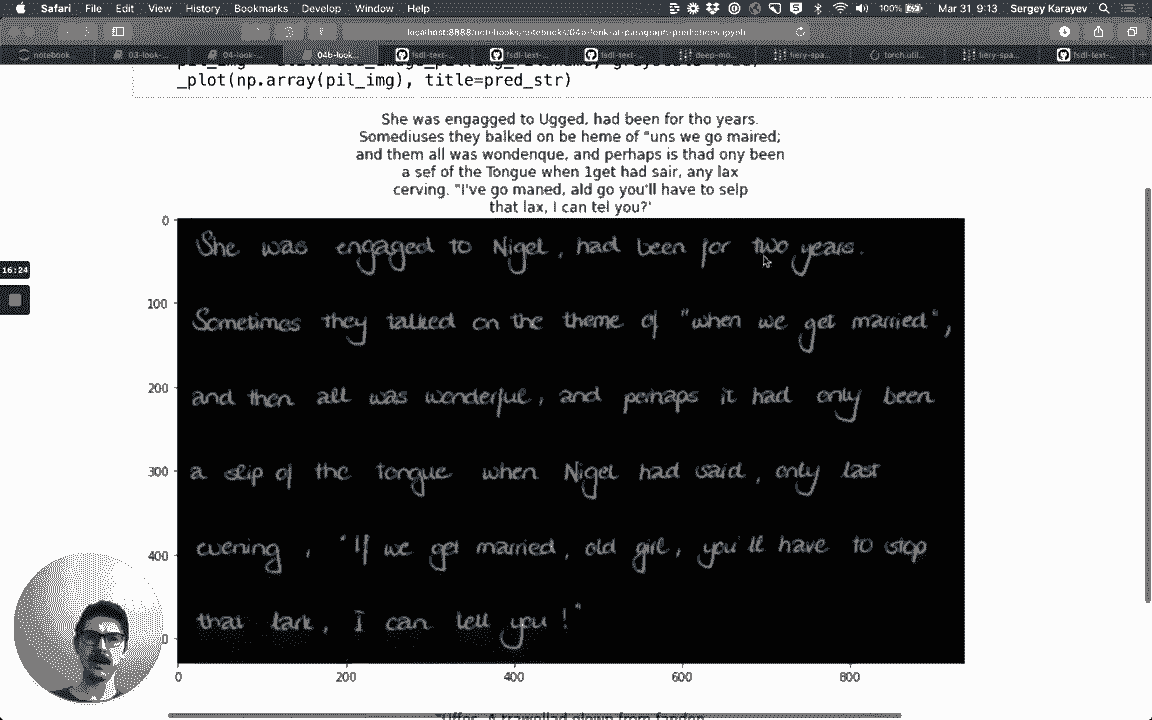 Safari File Edit View History Bookmarks Develop Window Help 100% Mar 31 9:13 Sergey Karayev
notebook 03-look-... 04-look-... 04b-look... fsdl-text-... fsdl-text-... fsdl-text-... deep-mo... fiery-spa... torch.util... fiery-spa... fsdl-text-... fsdl-text-...
_plot(np.array(pil_img), title=pred_str)
She was engagged to Ugged, had been for tho years.
Somediuses they balked on be heme of "uns we go maired;
and them all was wondenque, and perhaps is thad ony been
a sef of the Tongue when 1get had sair, any lax
cerving. "I've go maned, ald go you'll have to selp
that lax, I can tel you?'
0
She was engaged to Nigel, had been for two years.
16:24
100
Sometimes they talked on the theme of "when we get married",
200
and then all was wonderful, and perhaps it had only been
300
a slip of the tongue when Nigel had said, only last
400
evening, "If we get married, old girl, you'll have to stop
that lark, I can tell you!"
0
0 200 400 600 800